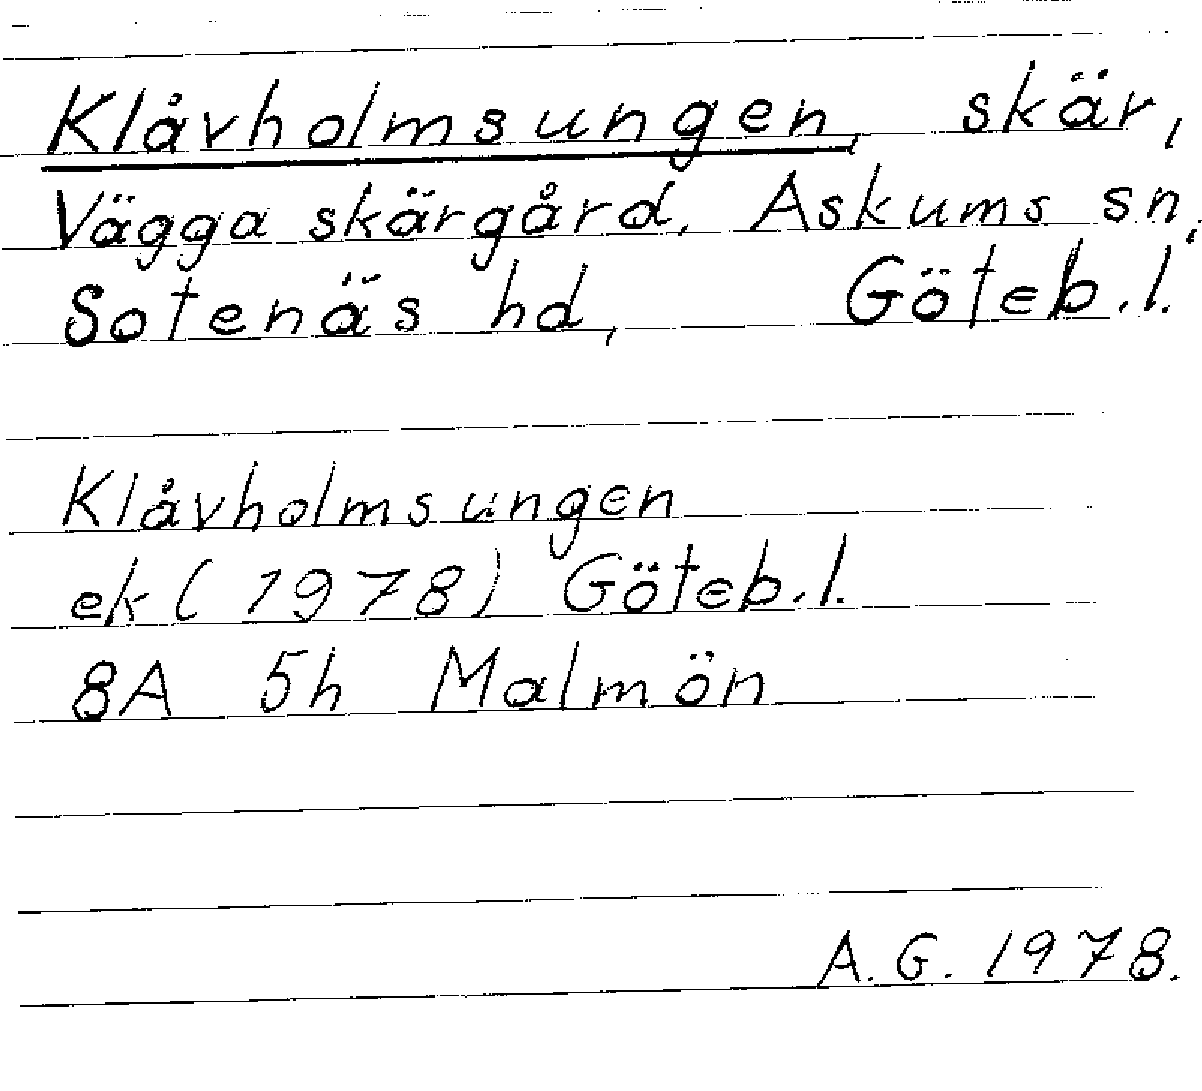 Klåvholmsungen, skär,
Vägga skärgård, Askums sn,
Sotenäs hd, Göteb.l.
Klåvholmsungen
ek (1978) Göteb.l.
8A 5h Malmön
A.G. 1978.